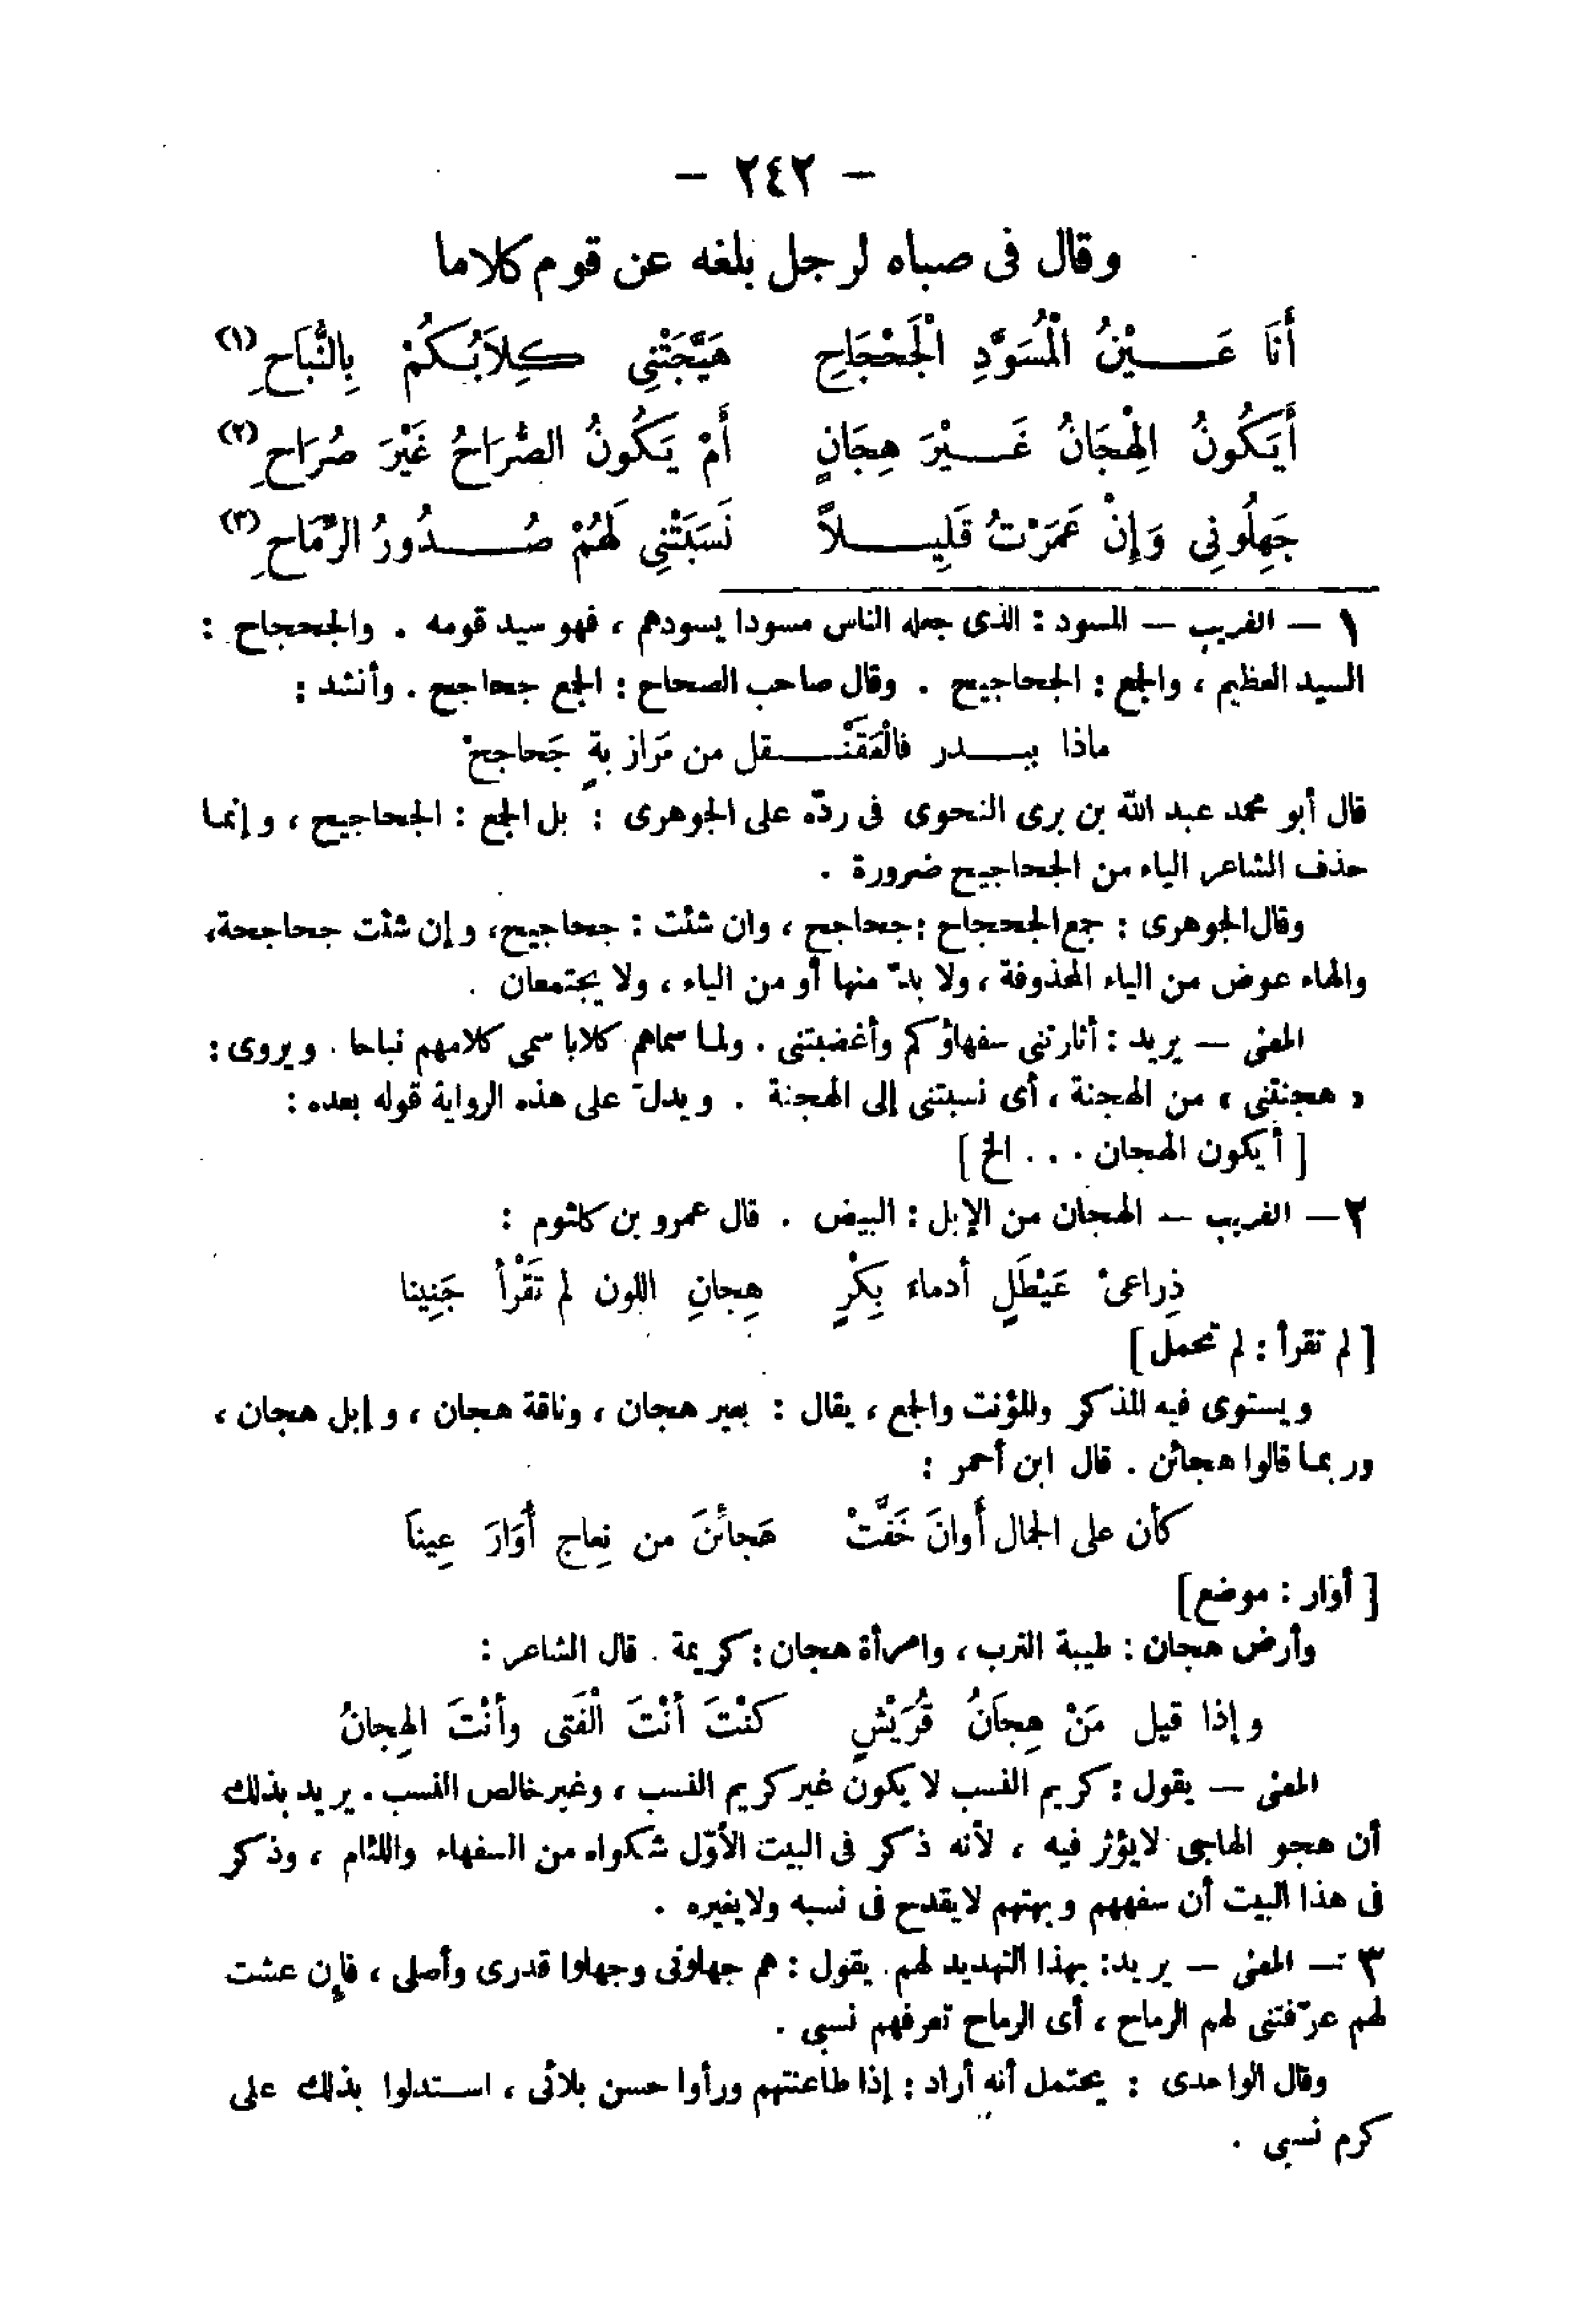 - ٢٤٢ -
وقال فى صباه لرجل بلغه عن قوم كلاما
أَنَا عَـــيْنُ الْمُسَوَّدِ الْجَحْجَاحِ هَيَّجَتْنِى كِلاَبُـكُمْ بِالنُّبَاحِ (١)
أَيَكُونُ الْهِجَانُ غَـــيْرَ هِجَانٍ أَمْ يَكُونُ الصُّرَاحُ غَيْرَ صُرَاحِ (٢)
جَهِلُونِى وَإِنْ عَمَرْتُ قَلِيـــلاً نَسَبَتْنِى لَهُمْ صُـــدُورُ الرِّمَاحِ (٣)
١ — الغريب — المسود : الذى جعله الناس مسودا يسودهم ، فهو سيد قومه . والجحجاح :
السيد العظيم ، والجمع : الجحاجيح . وقال صاحب الصحاح : الجمع جحاجح . وأنشد :
ماذا ببـــدر فالْعَقَنْـــقل من مَرَازبةٍ جَحاجحْ
قال أبو محمد عبد الله بن برى النحوى فى ردّه على الجوهرى : بل الجمع : الجحاجيح ، وإنما
حذف الشاعر الياء من الجحاجيح ضرورة .
وقال الجوهرى : جمع الجحجاح : جحاجح ، وان شئت : جحاجيح، وإن شئت جحاجحة،
والهاء عوض من الياء المحذوفة ، ولا بدّ منها أو من الياء ، ولا يجتمعان .
المعنى — يريد : أثارتنى سفهاؤكم وأغضبتنى . ولما سماهم كلابا سمى كلامهم نباحا . ويروى :
« هجنتنى » من الهجنة ، أى نسبتنى إلى الهجنة . ويدلّ على هذه الرواية قوله بعده :
[ أيكون الهجان ... الخ ]
٢ — الغريب — الهجان من الإبل : البيض . قال عمرو بن كلثوم :
ذِراعىْ عَيْطَلٍ أدماءَ بِكْرٍ هِجانِ اللون لم تَقْرأْ جَنِينا
[ لم تقرأ : لم تحمل ]
ويستوى فيه المذكر والمؤنث والجمع ، يقال : بعير هجان ، وناقة هجان ، وإبل هجان ،
وربما قالوا هجائن . قال ابن أحمر :
كأن على الجمال أَوانَ خَفَّتْ هَجائنَ من نِعاج أُوَارَ عِينَا
[ أوار : موضع ]
وأرض هجان : طيبة الترب ، وامرأة هجان : كريمة . قال الشاعر :
وإذا قيل مَنْ هِجاَنُ قُرَيْشٍ كنْتَ أنْتَ الْفَتَى وأنْتَ الهِجانُ
المعنى — يقول : كريم النسب لا يكون غير كريم النسب ، وغير خالص النسب . يريد بذلك
أن هجو الهاجى لايؤثر فيه ، لأنه ذكر فى البيت الأوّل شكواه من السفهاء واللئام ، وذكر
فى هذا البيت أن سفههم وبهتهم لايقدح فى نسبه ولايغيره .
٣ — المعنى — يريد: بهذا التهديد لهم . يقول : هم جهلونى وجهلوا قدرى وأصلى ، فإن عشت
لهم عرّفتنى لهم الرماح ، أى الرماح تعرفهم نسبى .
وقال الواحدى : يحتمل أنه أراد : إذا طاعنتهم ورأوا حسن بلائى ، استدلوا بذلك على
كرم نسبى .